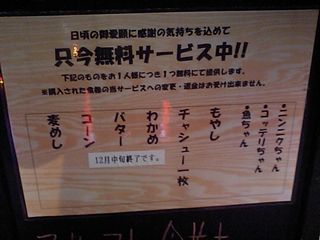 日頃の御愛顧に感謝の気持ちを込めて
只今無料サービス中!!
下記のものをお1人様につき1つ無料にて提供します。
※購入された食券の当サービスへの変更・返金はお受け出来ません。
・ニンニクちゃん
・コッテリちゃん
・魚ちゃん
もやし
チャシュー一枚
わかめ
バター
コーン
麦めし
12月中旬終了です。